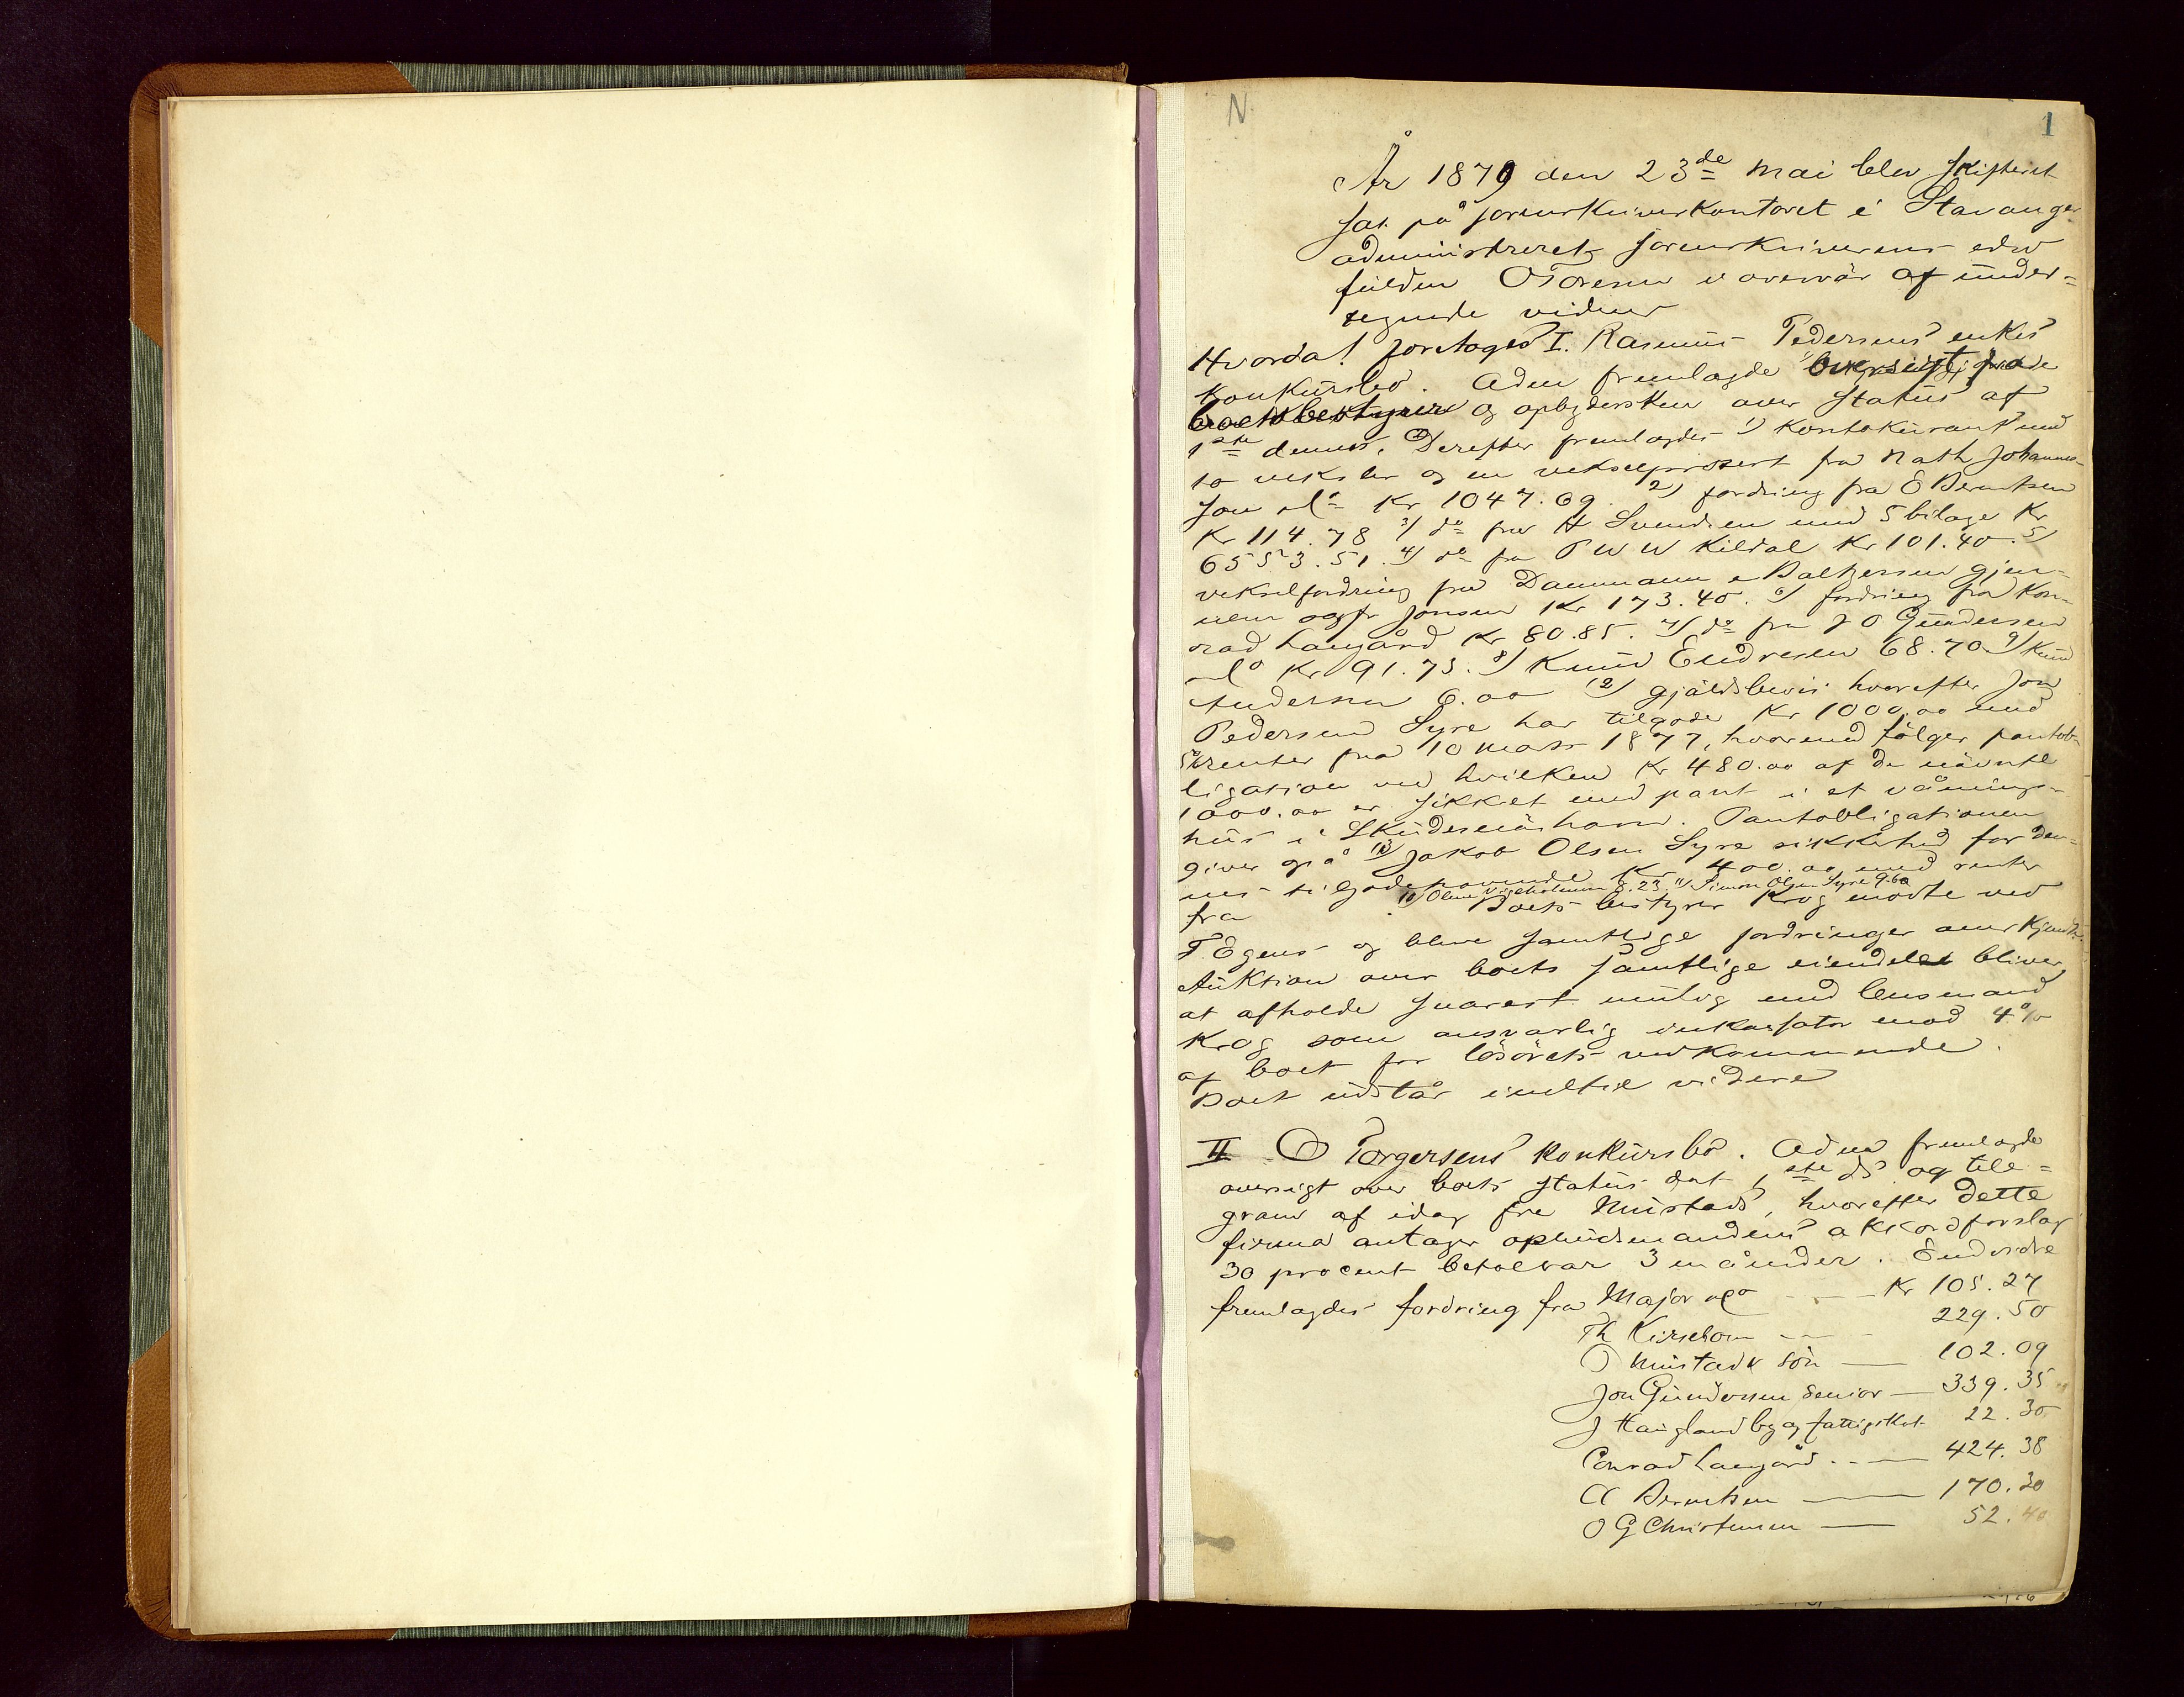 N
1
År 1879 den 23de mai blev skifteret
sat på sorenskriverkontoret i Stavanger
administreret sorenskriverens edsv
fuldm O Toresen i overvær af under=
tegnede vidner
Hvorda! foretoges I. Rasmus Pedersens enkes
konkursbo. Adm fremlagde oversigt fra
boets bestyrer og opbydersken over status af
1ste dennes. Derefter fremlagdes 1) Kontokurant med
to veksler og en vekselprotest fra Nath Johannes-
sen Kr 1047.69. 2) fordring fra E Berntsen
Kr 114.78 3) do fra H Svendsen med 5 bilage Kr
6553.51. 4) do fra P W W Kildal Kr 101.40. 5)
vekselfordring fra Dammann & Baltzersen gjen-
nem ogfr Jonsen Kr 173.40. 6) fordring fra Kon-
rad Langård Kr 80.85. 7) do fra J O Gundersen
Kr 91.75. 8) Knud Endresen 68.70 9) Knud
Andersen 6.00 12) gjældsbevis hvorefter Jon
Pedersen Syre har tilgode Kr 1000.00 med
5% renter fra 10 mars 1877, hvormed følger pantob-
ligation ved hvilken Kr 480.00 af de nævnte
1000.00 er sikket med pant i et vånings-
hus i Skudesnæshavn. Pantobligationen
giver også 13) Jakob Olsen Syre sikkerhed for den-
nes tilgodehavende Kr 400.00 med renter
10) Olene Vigeholmen 8.23 11) Simon Olsen Syre 9.60
fra Boets bestyrer Krog mødte ved
T. Egens og blev samtlige fordringer anerkjendt.
Auktion over boets samtlige eiendele bliver
at afholde snarest mulig med lensmand
Krog som ansvarlig inkassator mod 4%
af boet for løsørets vedkommende.
Boet udstår indtil videre
II O Torgersens konkursbo. Adm fremlagde
oversigt over boets status dat 1ste ds og tele=
gram af idag fra Mustads, hvorefter dette
firma antager opbudsmandens akkordforslag
30 procent betalbar 3 måneder. Endvidre
fremlagdes fordring fra Major & Co - - - Kr 105.27
Th Kirsebom - - - 229.50
O Mustad & Søn - 102.09
Jon Gundersen senior - 339.35
J Haugland by og fattigskat 22.30
Conrad Langård - - - 424.38
A Berntsen - 170.30
O G Christensen - 52.40